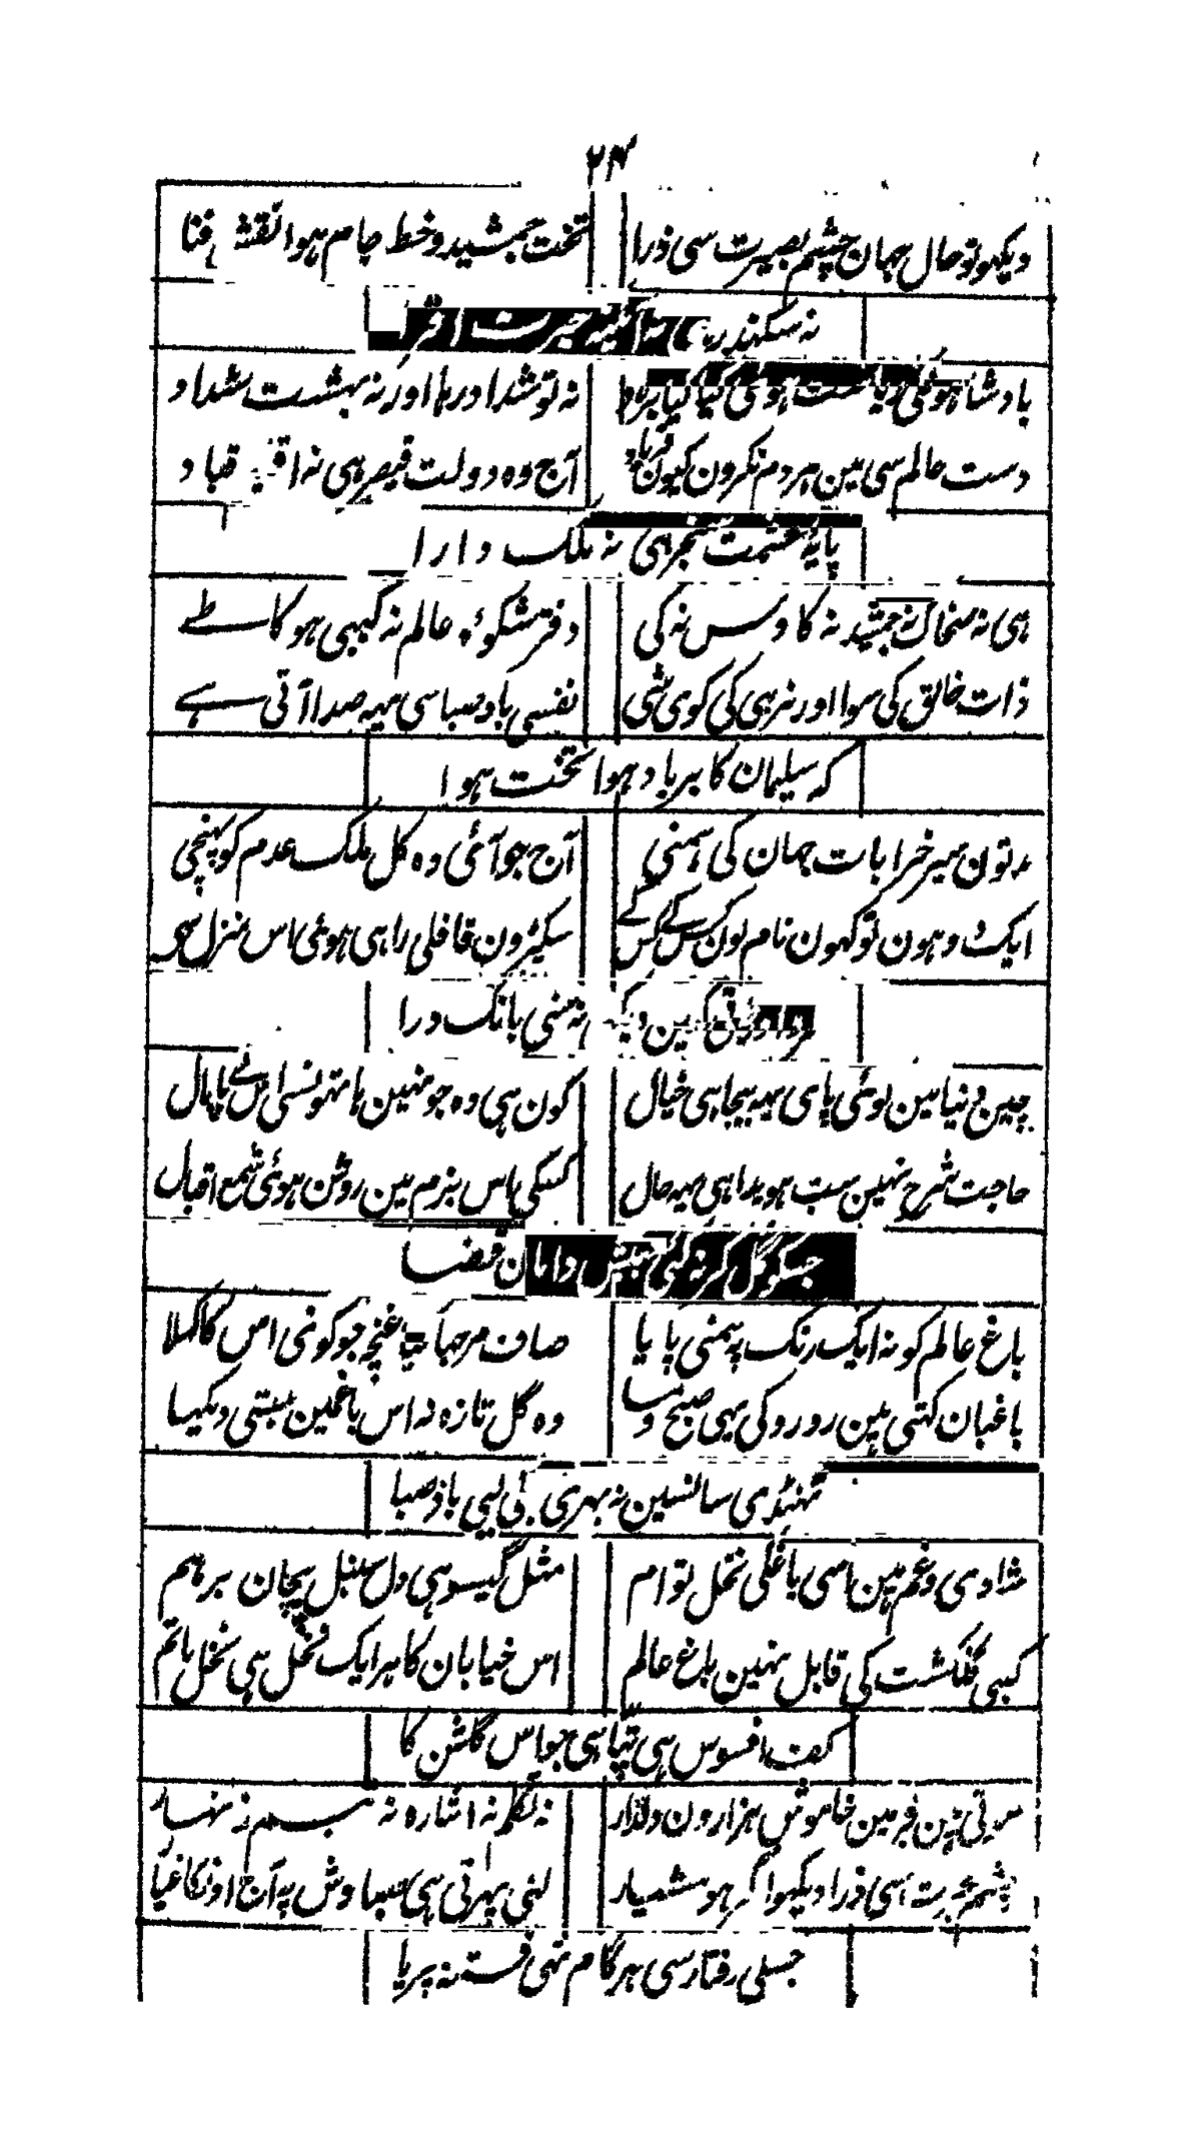 ۲۴
دیکھو تو حال جہان چشم بصیرت سی ذرا تخت جمشید و خط جام ہوا نقش فنا
نہ سکندر ہی نہ آئینہ حیرت افزا
بادشاہ ہوئی ریاست ہوئی کیا کیا برباد نہ تو شداد رہا اور نہ بہشت شداد
دست عالم سی مین ہر دم نکرون کیون فریاد آج وہ دولت قیصر ہی نہ قباد
پایۂ عشمت سنجر ہی نہ ملک دارا
ہی نہ ضحاک نہ جمشید نہ کاوس نہ کی دفتر شکوۂ عالم نہ کبہی ہوگا طے
ذات خالق کی سوا اور نرہی کی کوی شی نفسی باد صبا سی یہہ صدا آتی ہے
کہ سلیمان کا برباد ہوا تخت ہوا
مدتون سیر خرابات جہان کی ہمنی آج جو آئی وہ کل ملک عدم کو پہنچی
ایک دو ہون تو کہون نام لون کس کس کے سیکڑون قافلی راہی ہوئی اس منزل سی
نہ سنی بانگ درا
چین دنیا مین کوئی پای یہہ بیجا ہی خیال کون ہی وہ جو نہین ہاتہونسی اس کے پامال
حاجت شرح نہین سب ہویدا ہی یہہ حال کسکی اس بزم مین روشن ہوئی شمع اقبال
جسکو گل کر نہ گئی جنبش دامان قضا
باغ عالم کو نہ ایک رنگ پہ ہمنی پایا صاف مرجہا گیا غنچہ جو کوئی اس کا کہلا
باغبان کہتی ہین رو رو کی یہی صبح و مسا وہ گل تازہ نہ اس باغمین بستی دیکہا
ٹہنڈی سانسین نہ بہری جس کی لیی باد صبا
شادی و غم ہین اسی باغکی نخل توام مثل گیسو ہی دل سنبل پیچان برہم
کبہی گلگشت کی قابل نہین باغ عالم اس خیابان کا ہر ایک نخل ہی نخل ماتم
کف افسوس ہی پتا ہی جو اس گلشن کا
سوتی ہین قبر مین خاموش ہزارون دلدار نہ تکلم نہ اشارہ نہ تبسم نہ
چشم عبرت سی ذرا دیکہو اگر ہو ہشیار لئی پہرتی ہی صبا دوش پہ آج اونکا غبار
جسکی رفتار سی ہر گام تہی فتنہ برپا